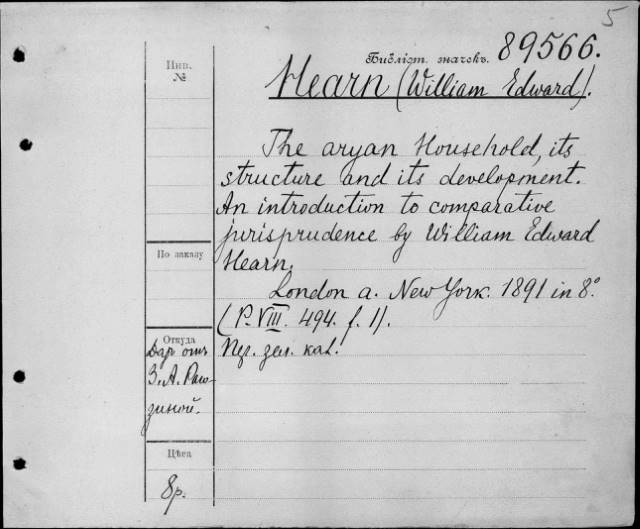 5
Библіот. значекъ. 89566.
Инв.
№
Hearn (William Edward).
The aryan Household, its
structure and its development.
An introduction to comparative
jurisprudence by William Edward
Hearn.
По заказу
London a. New York. 1891 in 8.°
(P. VIII. 494. f. 1).
Откуда
Даръ отъ
З. А. Раго-
зиной.
Пер. зел. кал.
Цѣна
8 р.